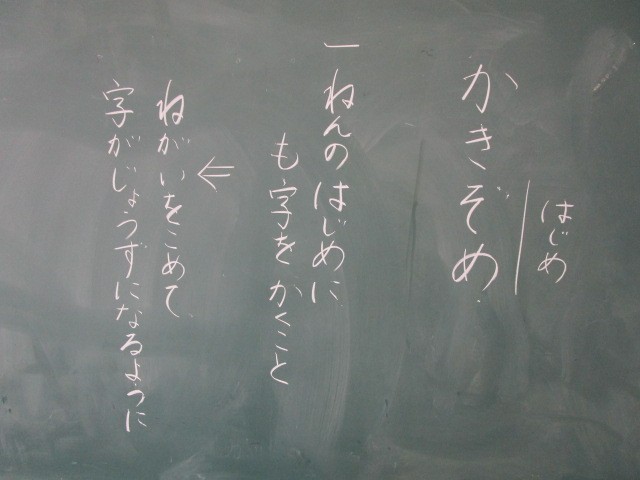 はじめ
かきぞめ
一ねんのはじめに
も字をかくこと
⇐
ねがいをこめて
字がじょうずになるように